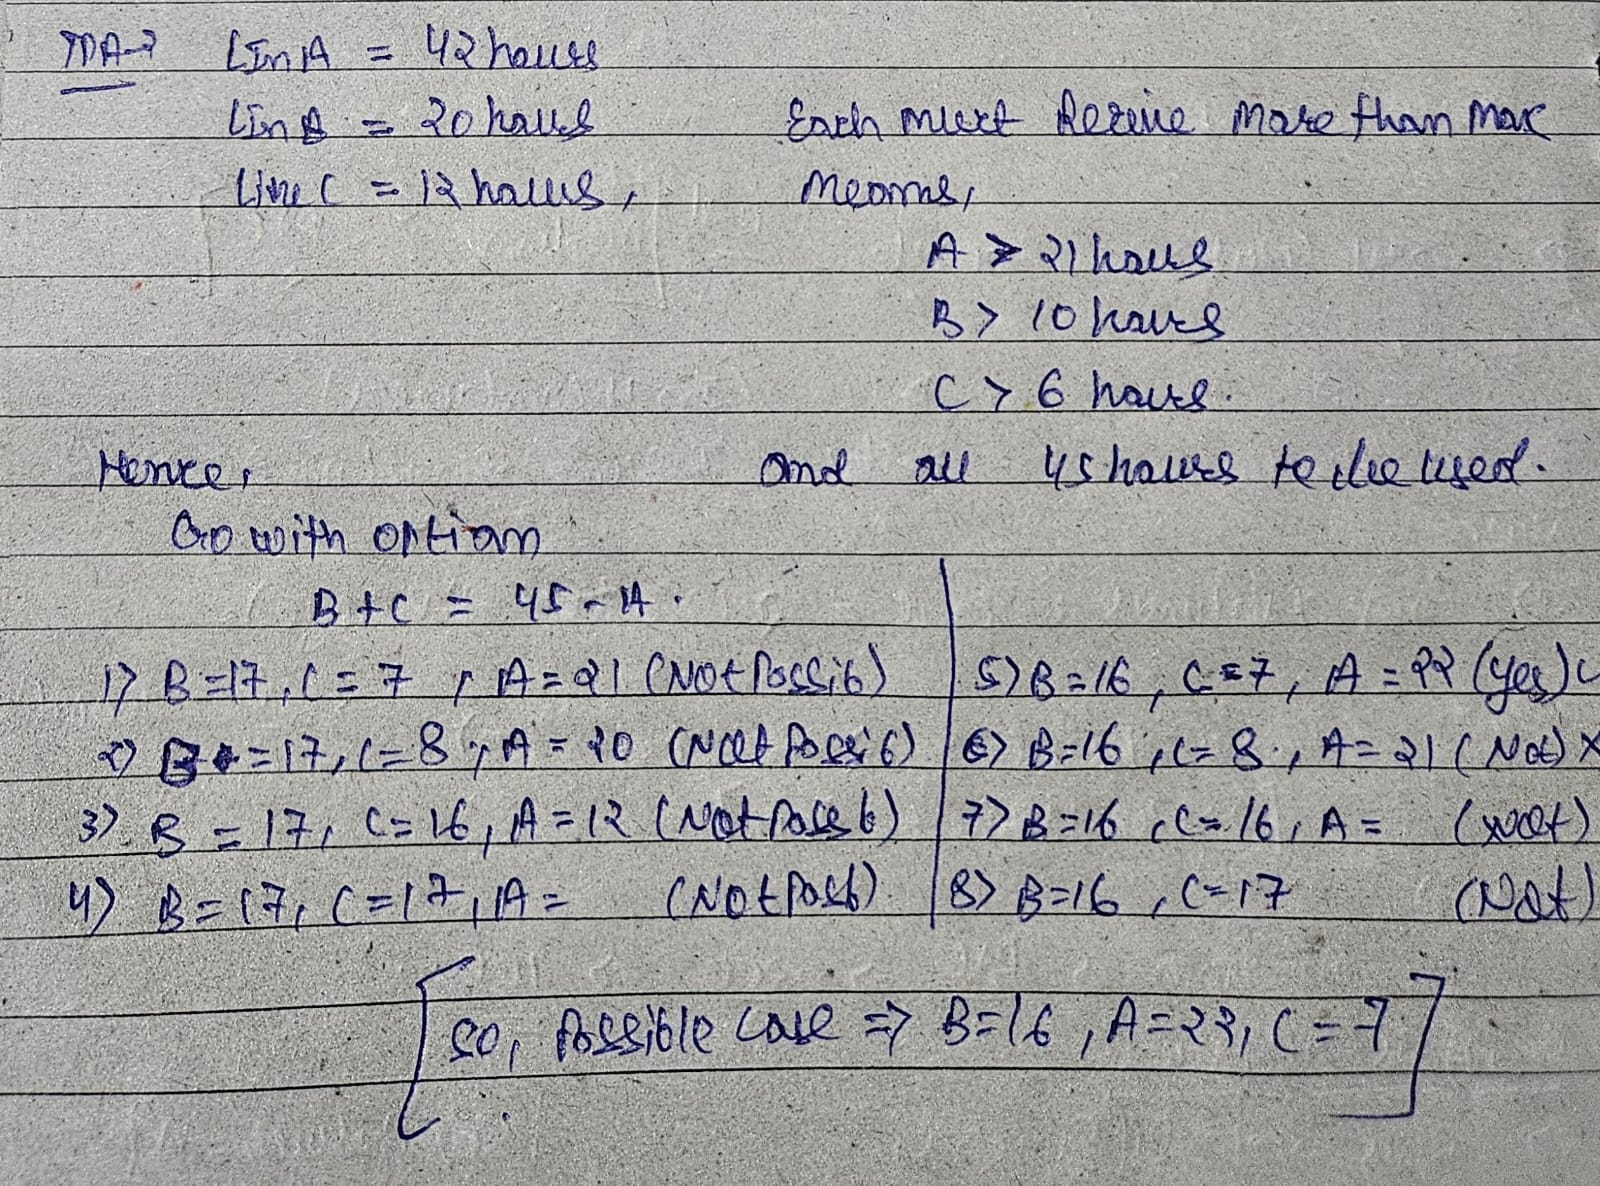 LinA = 42 hours
LinB = 20 hours Each must Receive More than Max
Line C = 12 hours, Means,
A > 21 hours
B > 10 hours
C > 6 hours.
Hence, and all 45 hours to be used.
Go with option
B + C = 45 - A.
1) B = 17, C = 7, A = 21 (Not Possib)
2) B = 17, C = 8, A = 20 (Not Possib)
3) B = 17, C = 16, A = 12 (Not Possb)
4) B = 17, C = 17, A = (Not Possb)
5) B = 16, C = 7, A = 22 (yes)
6) B = 16, C = 8, A = 21 (Not) X
7) B = 16, C = 16, A = (Not)
8) B = 16, C = 17 (Not)
[So, Possible case => B = 16, A = 22, C = 7]